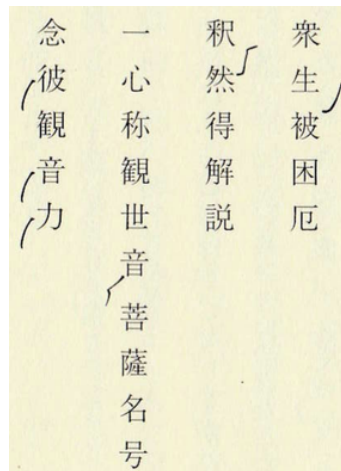 衆生被困厄
釈然得解説
一心称観世音菩薩名号
念彼観音力